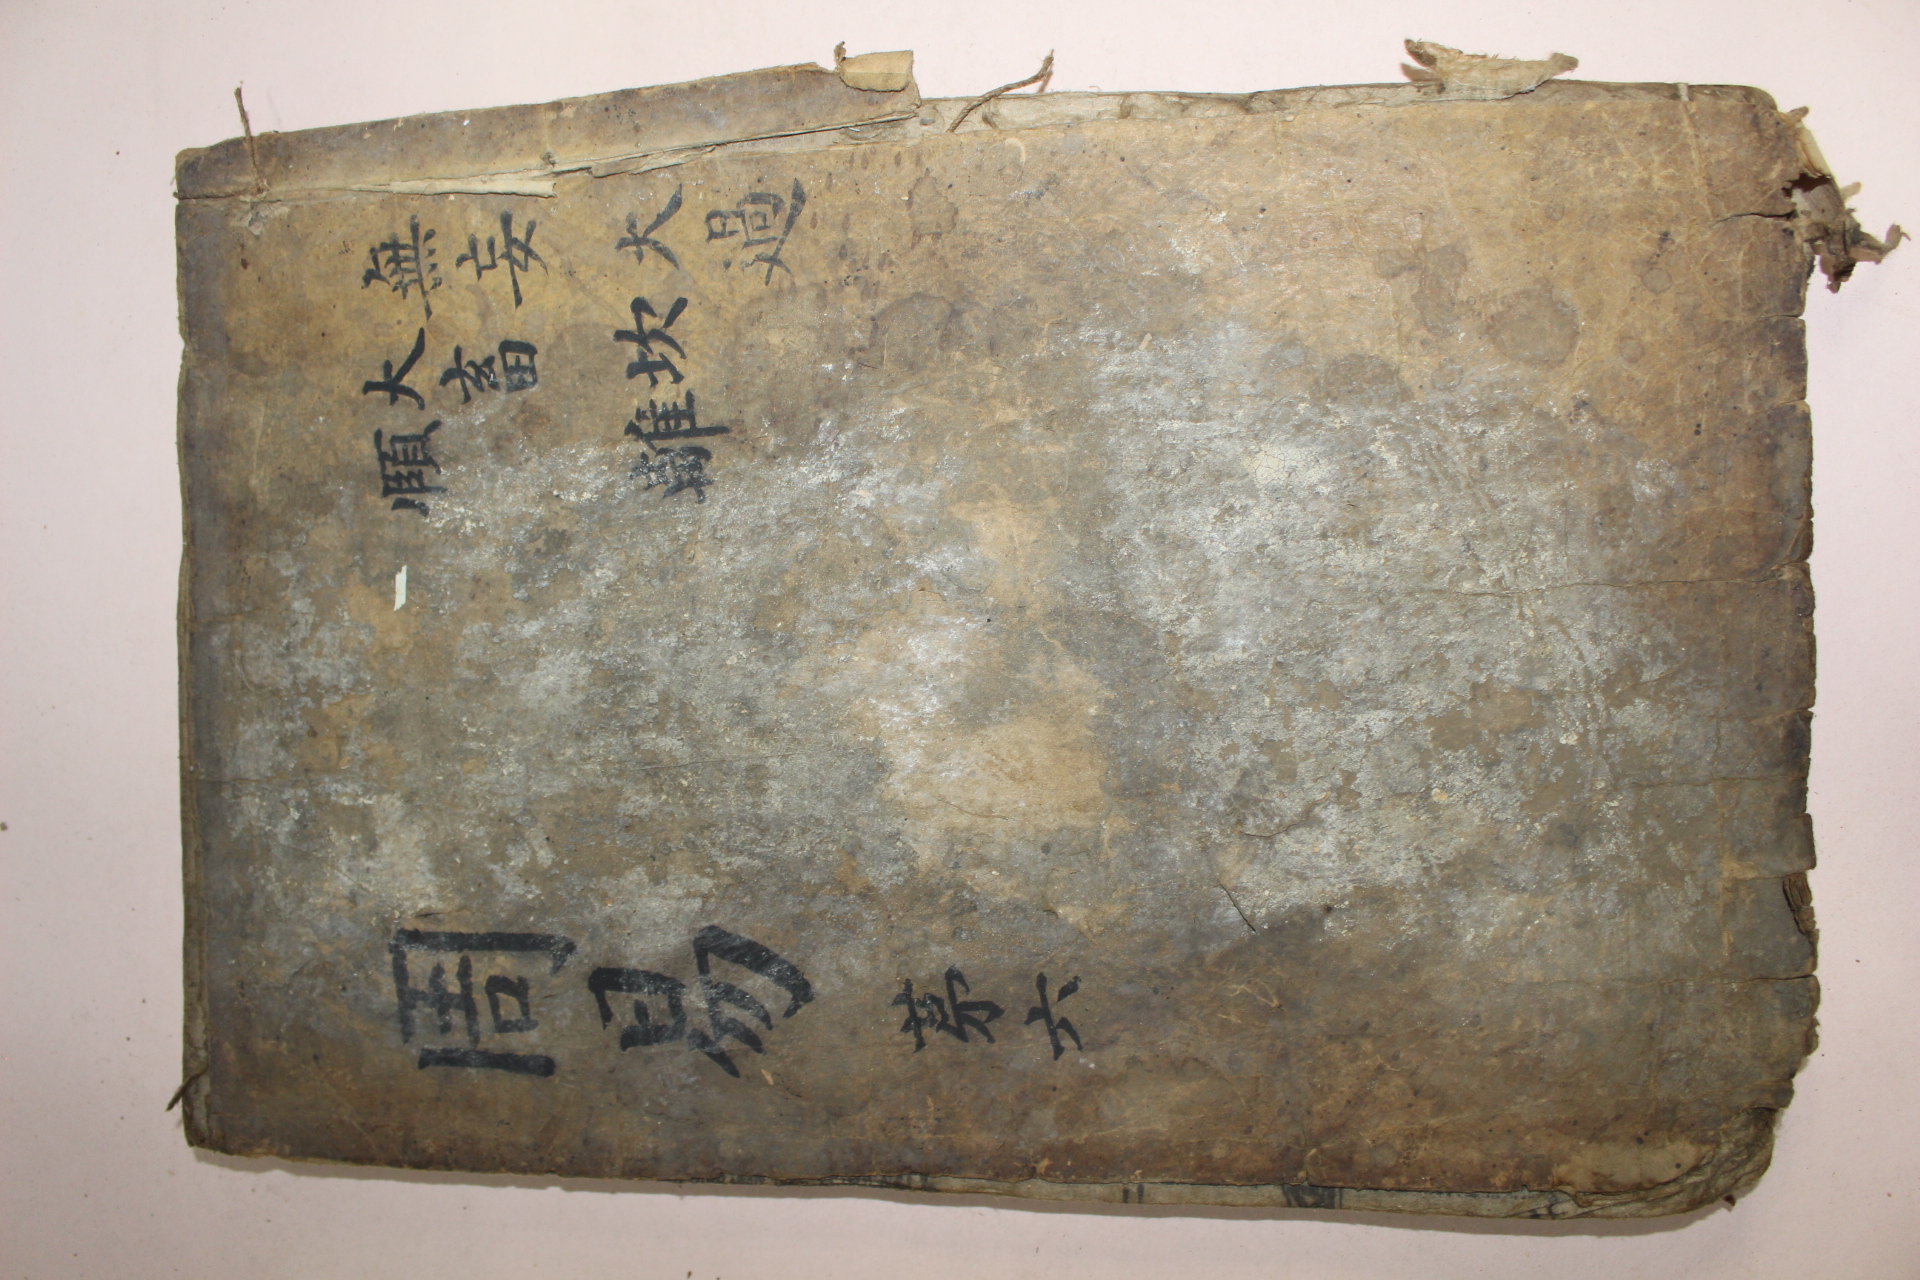 無妄
大畜
頤
大過
坎
離
周易 苐六